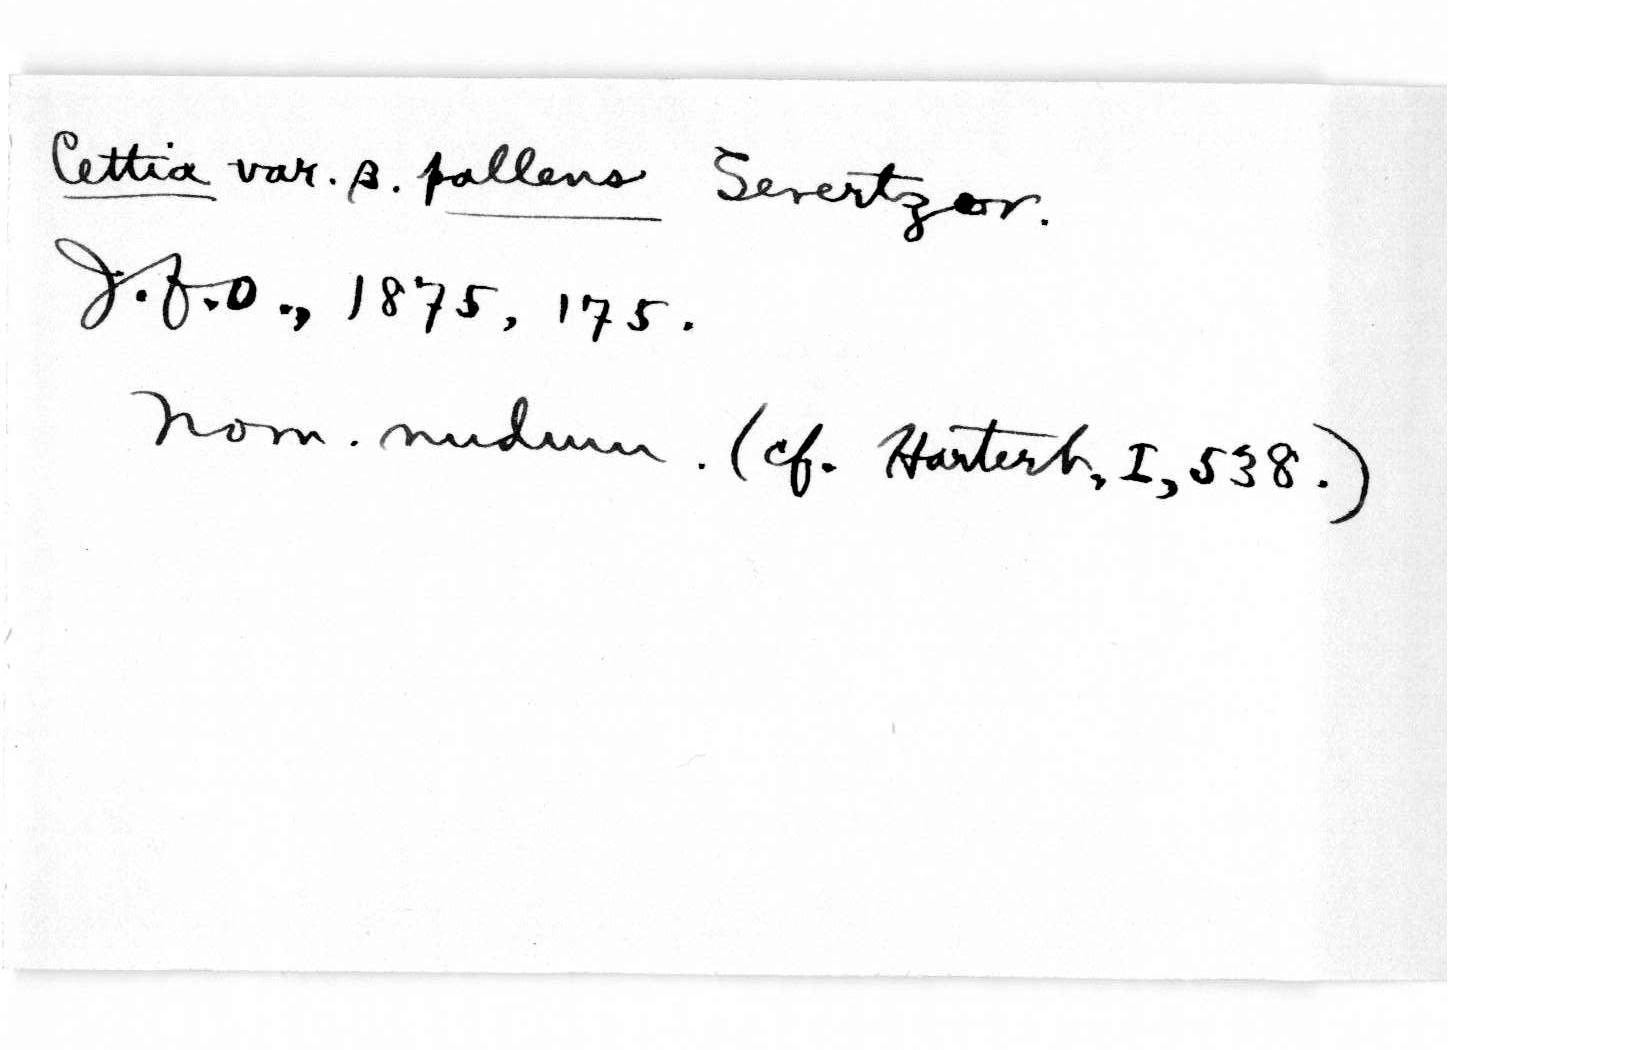 Cettia var. β. pallens Severtzov.
J.f.O., 1875, 175.
Nom. nudum. (cf. Hartert, I, 538.)